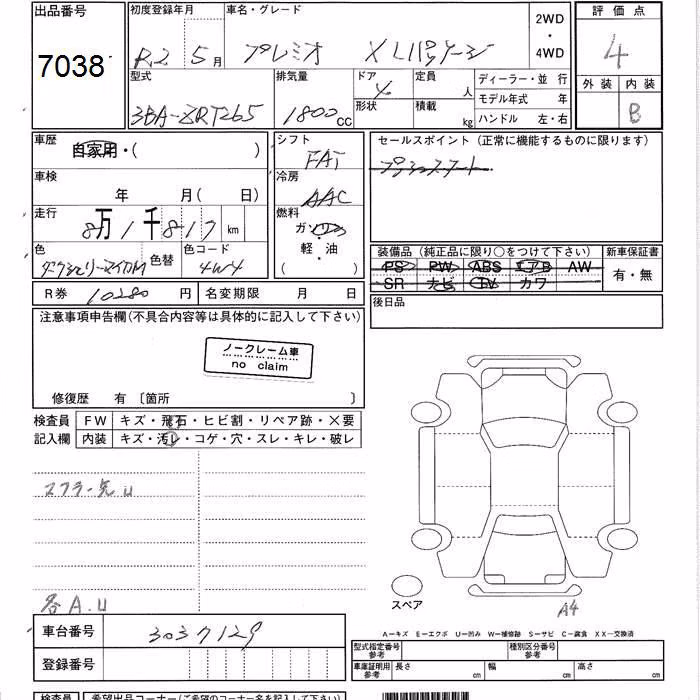 出品番号 初度登録年月 車名・グレード 2WD・4WD 評価点
7038 R2 5月 プレミオ XLパッケージ 4
型式 排気量 ドア 定員 人 ディーラー・並行 外装 内装
3BA-ZRT265 1800cc 4 形状 積載 kg モデル年式 年 B
ハンドル 左・右
車歴 自家用・( ) シフト FAT セールスポイント (正常に機能するものに限ります)
プッシュスタート
車検 年 月( 日) 冷房 AAC
走行 8万1千817km 燃料 ガソリン・軽・油 ( )
色 ダークシェリーマイカM 色替 色コード 4W4
装備品(純正品に限り○をつけて下さい) 新車保証書
PS PW ABS エアB AW 有・無
SR ナビ TV カワ
R券 10280円 名変期限 月 日 後日品
注意事項申告欄(不具合内容等は具体的に記入して下さい)
ノークレーム車
no claim
修復歴 有 〔箇所 〕
検査員 FW キズ・飛石・ヒビ割・リペア跡・×要
記入欄 内装 キズ・汚レ・コゲ・穴・スレ・キレ・破レ
マフラー先U
各A.U
スペア
A4
車台番号 3037129
A―キズ E―エクボ U―凹み W―補修跡 S―サビ C―腐食 XX―交換済
登録番号 型式指定番号 参考 種別区分番号 参考
車庫証明用 参考 長さ cm 幅 cm 高さ cm
検査員 希望出品コーナー(ご希望のコーナー名を記入して下さい)